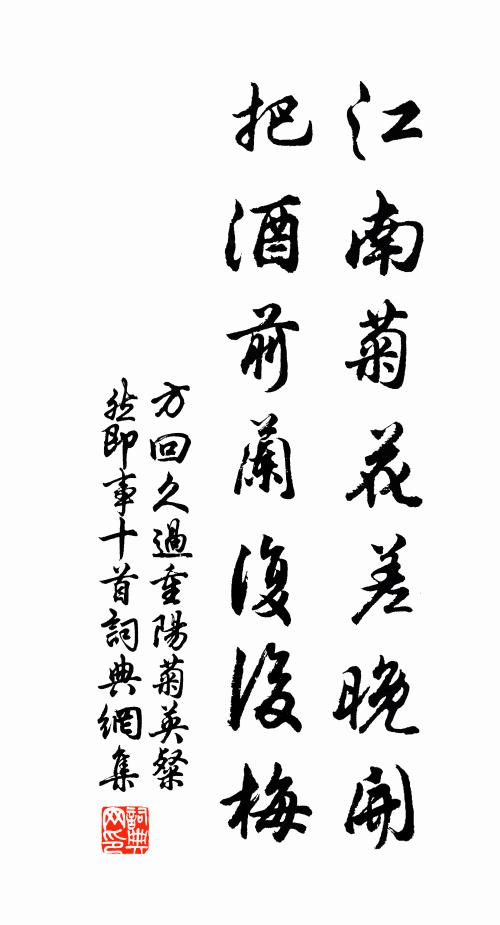 江南菊花差晚開
把酒前蘭復後梅
方回久過重陽菊英粲
然即事十首詞典網集
詞典
网印